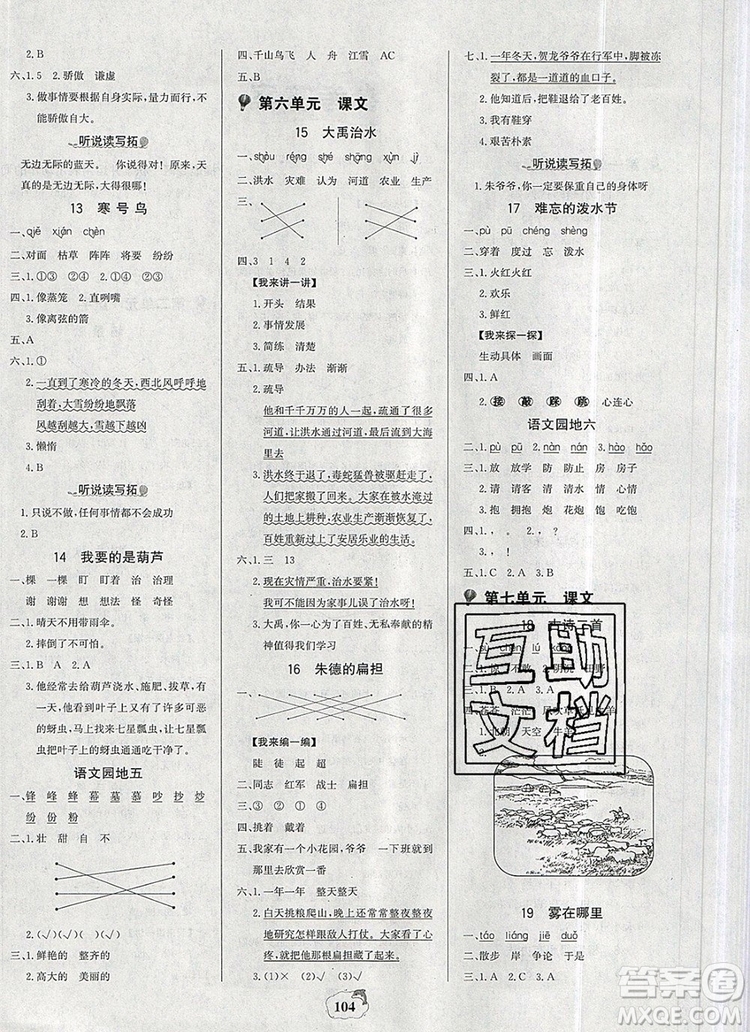 2. B
六、1. 5　2. 骄傲　谦虚
3. 做事情要根据自身实际,量力而行,不
能骄傲自大。
听说读写拓
无边无际的蓝天。　你弄错了!　原来,天
真的是无边无际、大得很哪!
13　寒号鸟
一、qiě　xián　chèn
二、对面　枯草　阵阵　将要　纷纷
三、1. ①③　2. ②④　①③②④
四、1. 像蒸笼　2. 直咧嘴
3. 像离弦的箭
五、A
六、1. ①
2. 一直到了寒冷的冬天,西北风呼呼地
刮着,大雪纷纷地飘落
风越刮越大,雪越下越大。
3. 懒惰
4. B
听说读写拓
1. 只说不做,任何事情都不可能完成。
2. B
14　我要的是葫芦
一、棵　一棵　盯　盯着　治　治理
谢　谢谢　想　想法　怪　奇怪
二、1. 晴天用不着带雨伞。
2. 摔倒了不可怕。
三、1. B　2. A　3. A
3. 他经常去给葫芦浇水、施肥、拔草,有一
天,他看见叶子上爬着许多可恶
的蚜虫,马上买来十几只七星瓢虫,七星瓢虫
把叶子上的蚜虫通通消灭了。
语文园地五
一、锋　峰　蜂　幕　墓　慕　吵　抄　炒
纷　份　粉
二、1. 壮　甜　自　不
2. (√)(　)(　)(√)
三、1. 鲜艳的　整齐的
2. 高大的　美丽的
四、千山鸟飞　人　舟　江雪　AC
五、B
第六单元　课文
15　大禹治水
二、洪水　灾难　认为　河道　农业　生产
三、
四、3　1　4　2
【我来讲一讲】
1. 开头　结果
2. 事情发展
3. 简练　清楚
五、1. 疏导　办法　渐渐
2. 疏导
他和千千万万的人一起,疏通了很多
河道,让洪水通过河道,流到大海
里去
3. 洪水退了,毒蛇猛兽被驱赶走了,人
们把家搬了回来。大家在被水淹过
的土地上耕种,农业生产渐渐恢复了,
百姓重新过上了安居乐业的生活。
六、1. 三　13
2. 现在灾情严重,治水要紧!
我不能因为家事儿误了治水大事!
3. 大禹,你一心为公、无私奉献的精
神值得我们学习
16　朱德的扁担
一、
【我来编一编】
陡　徒　起　超
二、同志　红军　战士　扁担
三、③　①　②　④
四、挑着　戴着
五、我家有一个小花园,爷爷　一下班就
去花园里欣赏各种花。
六、1. 一年一年　整天整天
2. 白天挑粮爬山,晚上还常常整夜整夜
地研究怎样跟敌人打仗。大家看了心
疼,就把他那根扁担藏了起来。
3. (1)×　(2)√　(3)√　(4)√
104
七、1. 一年冬天,贺龙爷爷在行军中,脚被冻
裂了,都是一道道的血口子。
2. 他知道后,把鞋退给了老百姓。
3. 我有鞋穿
4. 艰苦朴素
听说读写拓
1. 朱爷爷,你一定要保重自己的身体呀
17　难忘的泼水节
一、pù　pū　chéng　shèng
二、穿着　度过　敬爱　咚咚
三、1. 火红火红
2. 欢乐
3. 鲜红
【我来探一探】
生动具体　画面
四、1. A
2. 接　敲　踩　踏　心连心
语文园地六
一、pù　pū　nàn　nán　hào　hǎo
二、放　放学　防　防止　房　房子
三、请　请客　清　清水　情　心情
抱　拥抱　炮　炮火　饱　吃饱
四、,　,　。
五、1. C　2. A　3. B
第七单元　课文
19　雾在哪里
一、táo　liáng　jiē　duǒ
二、散步　岸　争论　于是
三、1. A　2. C　3. A
互助文档
答案圈
MXQE.COM